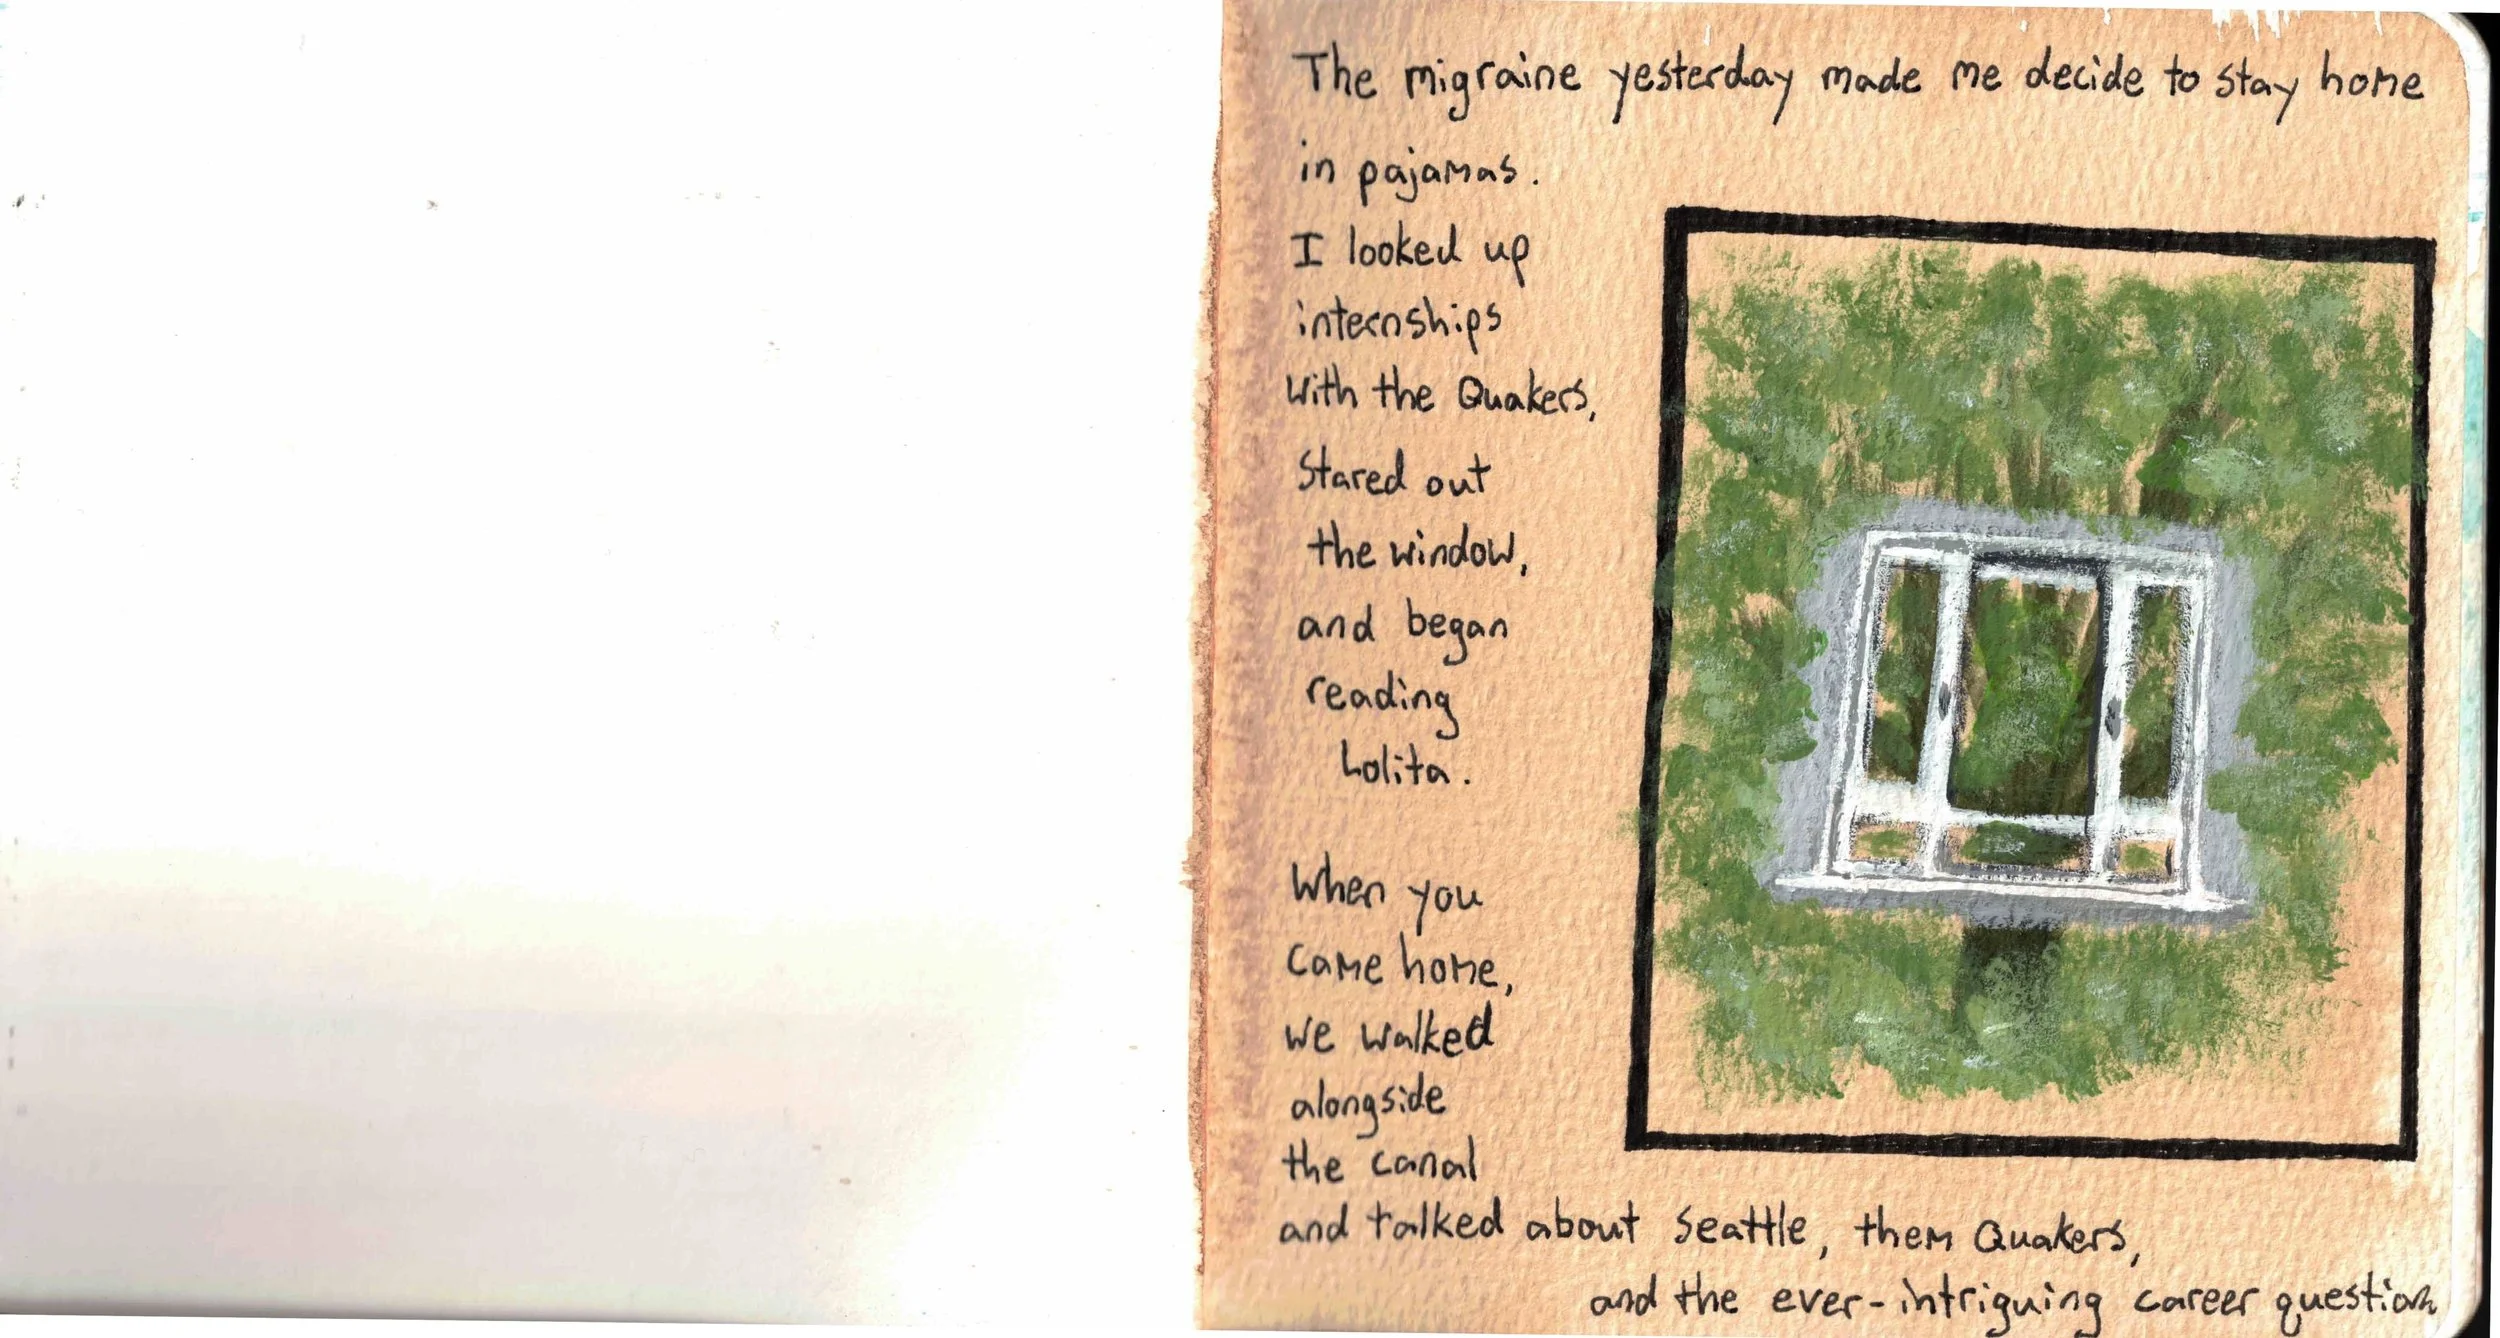 The migraine yesterday made me decide to stay home
in pajamas.
I looked up
internships
with the Quakers,
stared out
the window,
and began
reading
Lolita.
When you
came home,
we walked
alongside
the canal
and talked about Seattle, them Quakers,
and the ever-intriguing career question